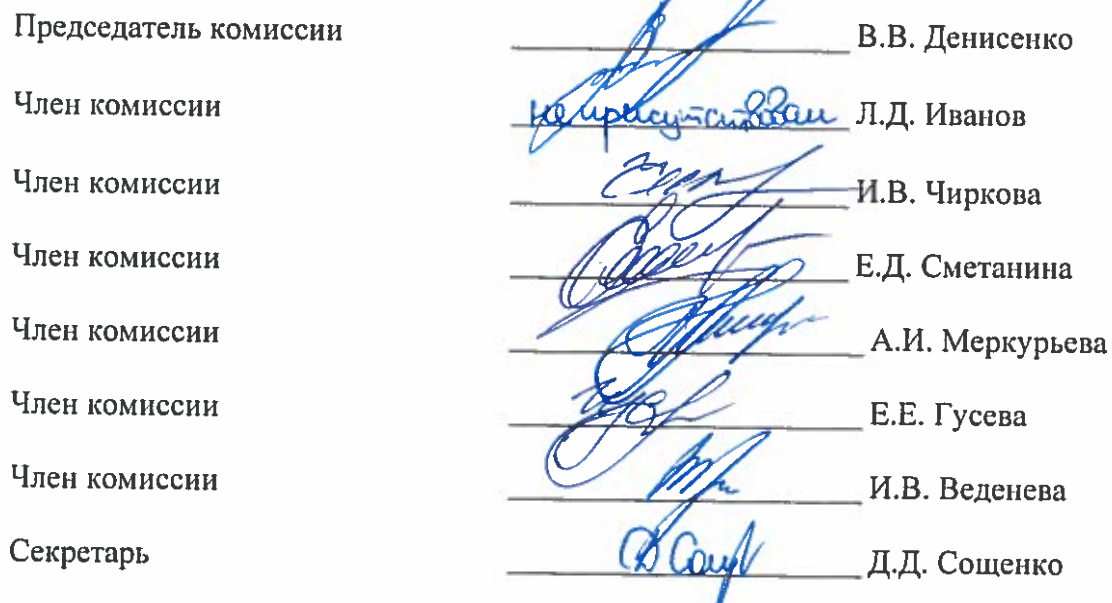 Председатель комиссии В.В. Денисенко
Член комиссии не присутствовал Л.Д. Иванов
Член комиссии И.В. Чиркова
Член комиссии Е.Д. Сметанина
Член комиссии А.И. Меркурьева
Член комиссии Е.Е. Гусева
Член комиссии И.В. Веденева
Секретарь Д.Д. Сощенко